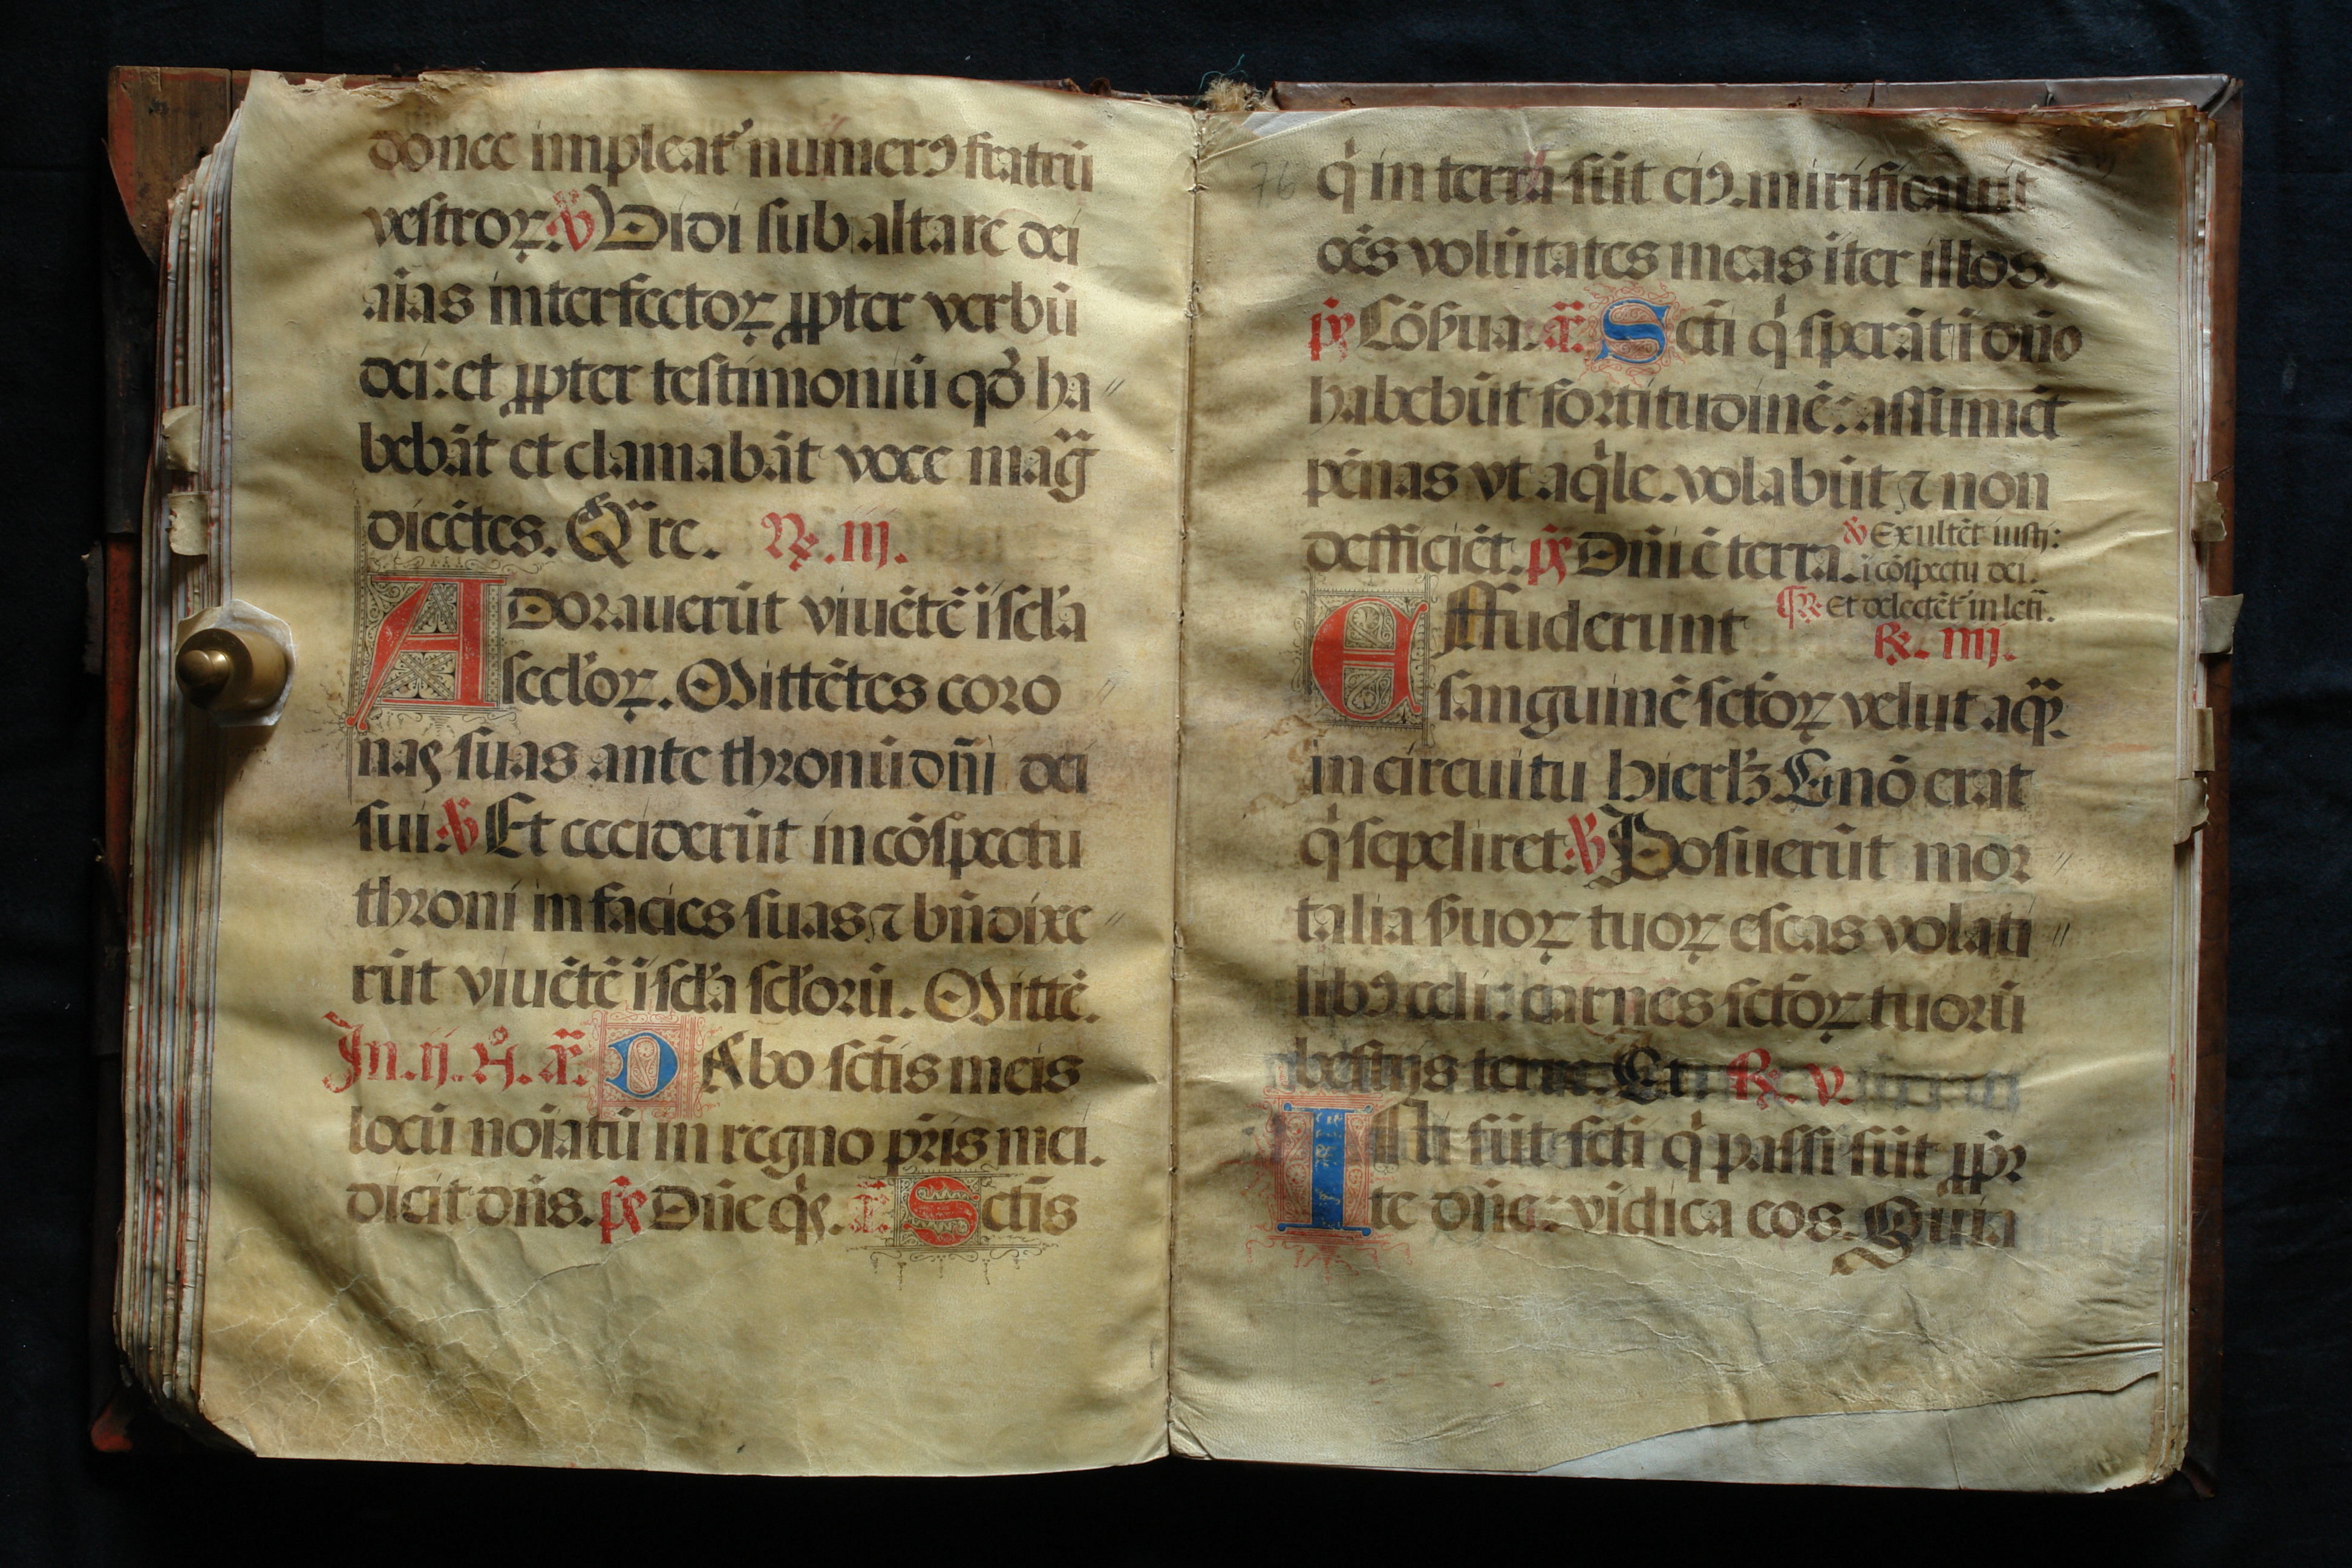 donec impleat᷑ numerꝯ fratrū
vestroꝝ. ℣ Vidi sub altare dei
aīas interfectoꝝ ꝓpter verbū
dei: et ꝓpter testimoniū qđ ha〃
bebāt et clamabāt voce mag̃
dicētes. Qͣre. ℟. iij.
Adorauerūt viuētē ī scl̓a
secl̓oꝝ. Mittētes coro〃
nas suas ante thronū dn̄i dei
sui. ℣ Et ceciderūt in cōspectu
throni in facies suas ⁊ bn̄dixe〃
rūt viuētē ī scl̓a scl̓orū. Mittē.
In. ij. N̊. añ. DAbo sctīs meis
locū noīatū in regno pr̄is mei.
dicit dn̄s. p̄s Dn̄e qͥs. añ. Sctīs
76
qͥ in terra sūt eiꝯ. mirificauit
oēs volūtates meas iter illos.
p̄s Cōẜua. añ. Sctī qͥ sperāt ī dn̄o
habebūt fortitudinē: assumēt
pēnas vt aqͥle. volabūt ⁊ non
defficiēt. p̄s Dn̄i ē terra. ℣ Exultēt iusti:
ī cōspectu dei.
℟ Et delectēt᷑ in letī.
Effuderunt ℟. iiij.
sanguinē sctōꝝ velut aqͣ.
in circuitu hierlꝫ. Et nō erat
qͥ sepeliret. ℣ Posuerūt mor〃
talia ẜuoꝝ tuoꝝ escas volati〃
libꝯ celi: carnes sctōꝝ tuorū
bestijs terre. Et. ℟. v.
Isti sūt sctī qͥ passi sūt ꝓpr̄
te dn̄e: vīdica eos. Quia